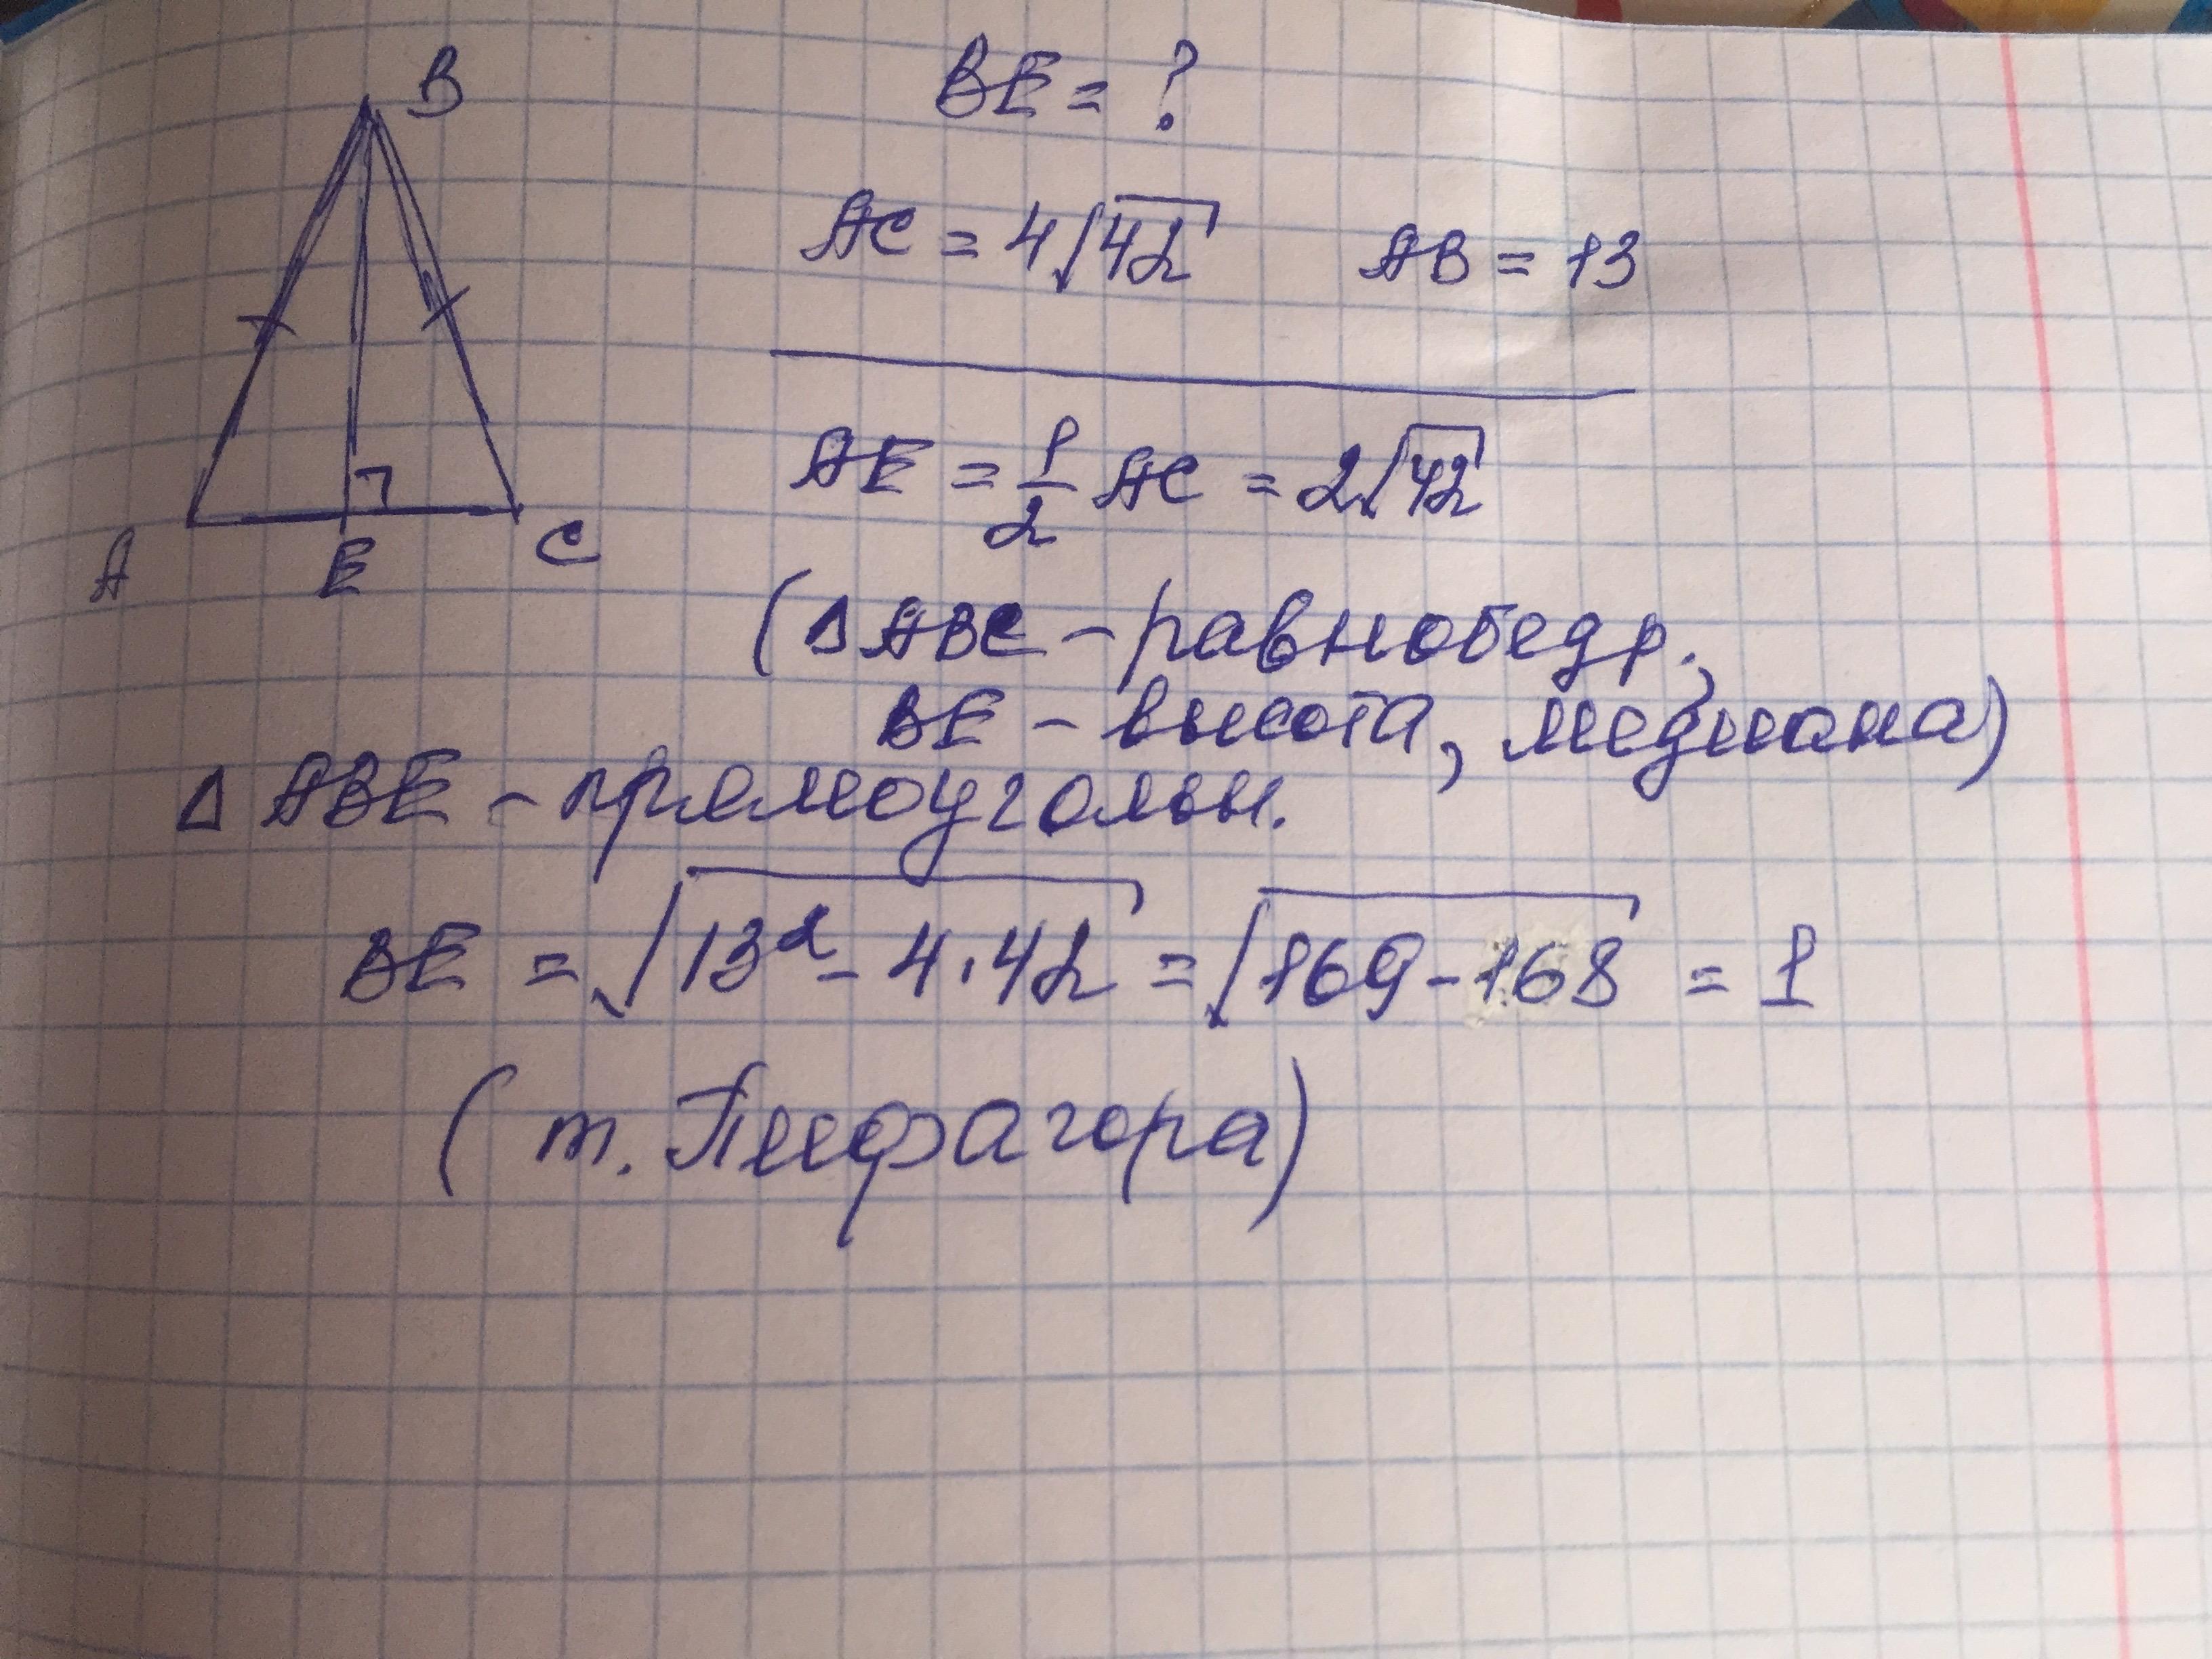 B
BE = ?
AC = 4√42 AB = 13
AE = 1/2 AC = 2√42
A E C
(Δ ABC - равнобедр.,
BE - высота, медиана)
Δ ABE - прямоугольн.
BE = √13² - 4·42 = √169 - 168 = 1
(т. Пифагора)